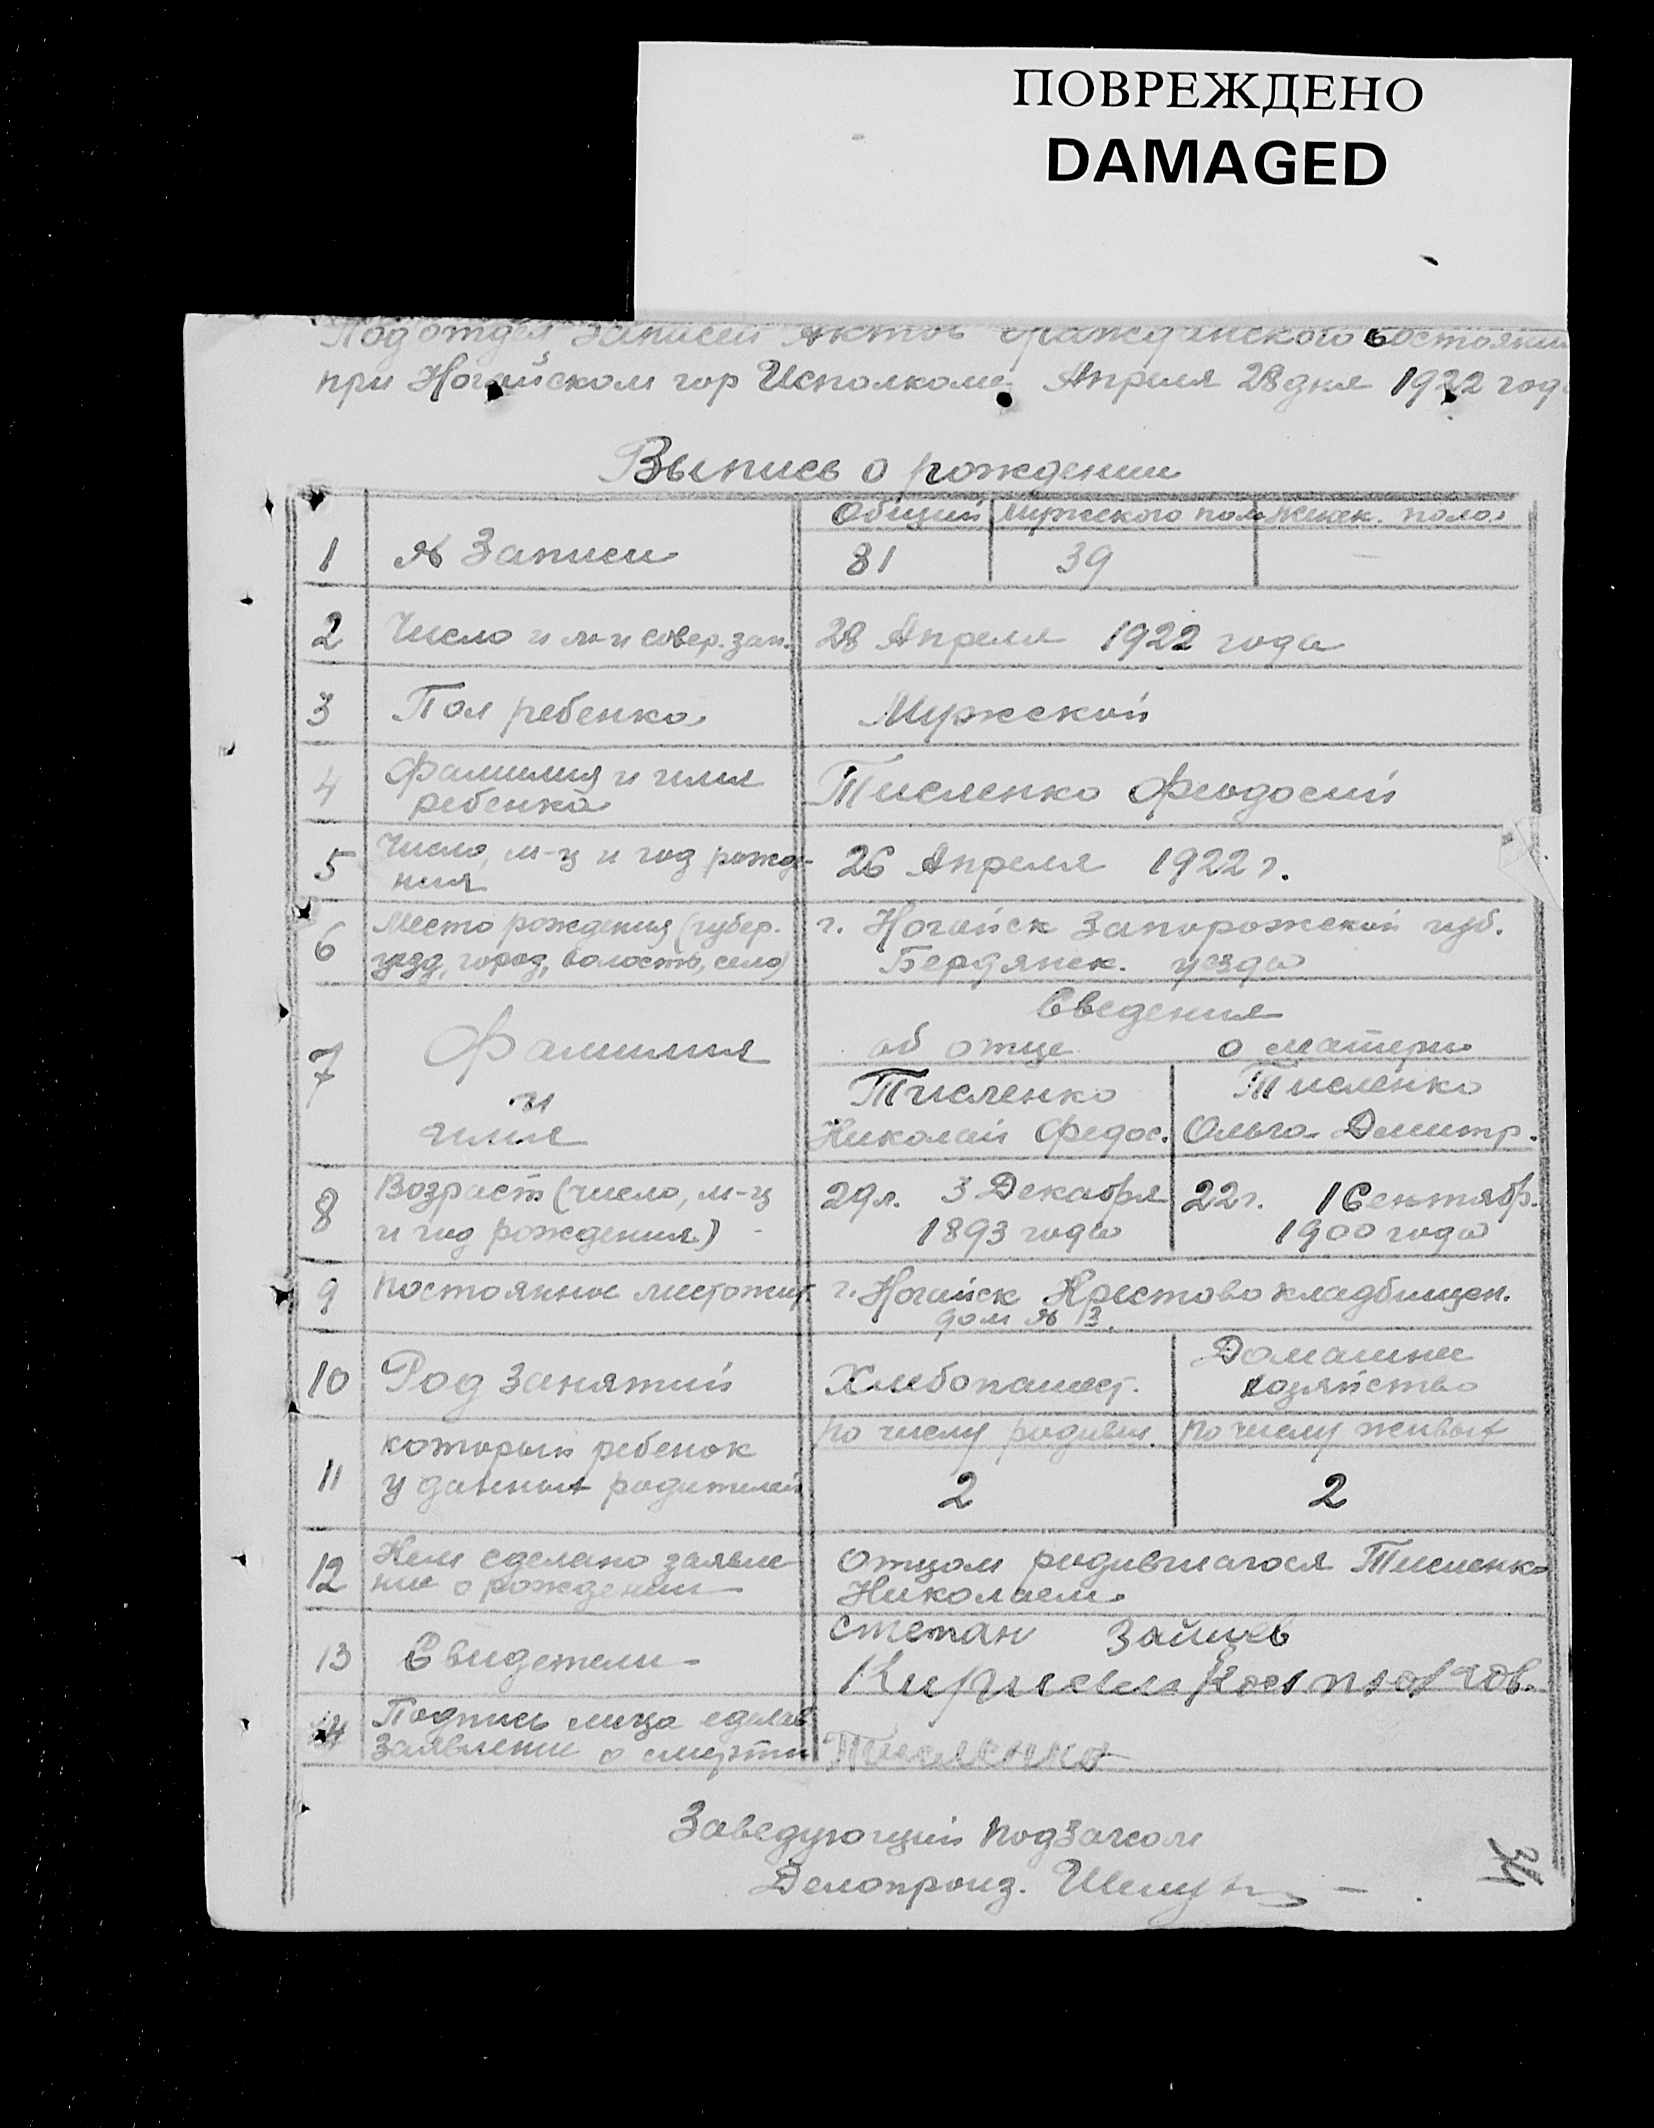 ПОВРЕЖДЕНО
DAMAGED
Подотдел Записей Актов Гражданского Состояния
при Ногайском гор Исполкоме Апреля 28 дня 1922 года
Выпись о рождении
Общий Мужского пола Женск. пола
1 № Записи 81 39 —
2 Число и м-ц совер. зап. 28 Апреля 1922 года
3 Пол ребенка Мужской
4 Фамилия и имя
ребенка Тисленко Феодосий
5 Число, м-ц и год рожде-
ния 26 Апреля 1922 г.
6 Место рождения (губер.
уезд, город, волость, село)
г. Ногайск Запорожской губ.
Бердянск. уезда
7 Фамилия
и
имя
Сведения
об отце о матери
Тисленко Тисленко
Николай Федос. Ольга Демитр.
8 Возраст (число, м-ц
и год рождения)
29 л. 3 Декабря 22 г. 1 Сентябр.
1893 года 1900 года
9 Постоянное местожит. г. Ногайск Крестово кладбищен.
дом № 13.
10 Род занятий Хлебопашест. Домашнее
хозяйство
11 который ребенок
у данных родителей
по числу родивш. по числу живых
2 2
12 Кем сделано заявле
ние о рождении
Отцом родившагося Тисленко
Николаем.
13 Свидетели
Степан Зайцев
14 Подпись лица сделав
заявление о смерти Тисленко
Заведующий подЗагсом
Делопроиз.
34